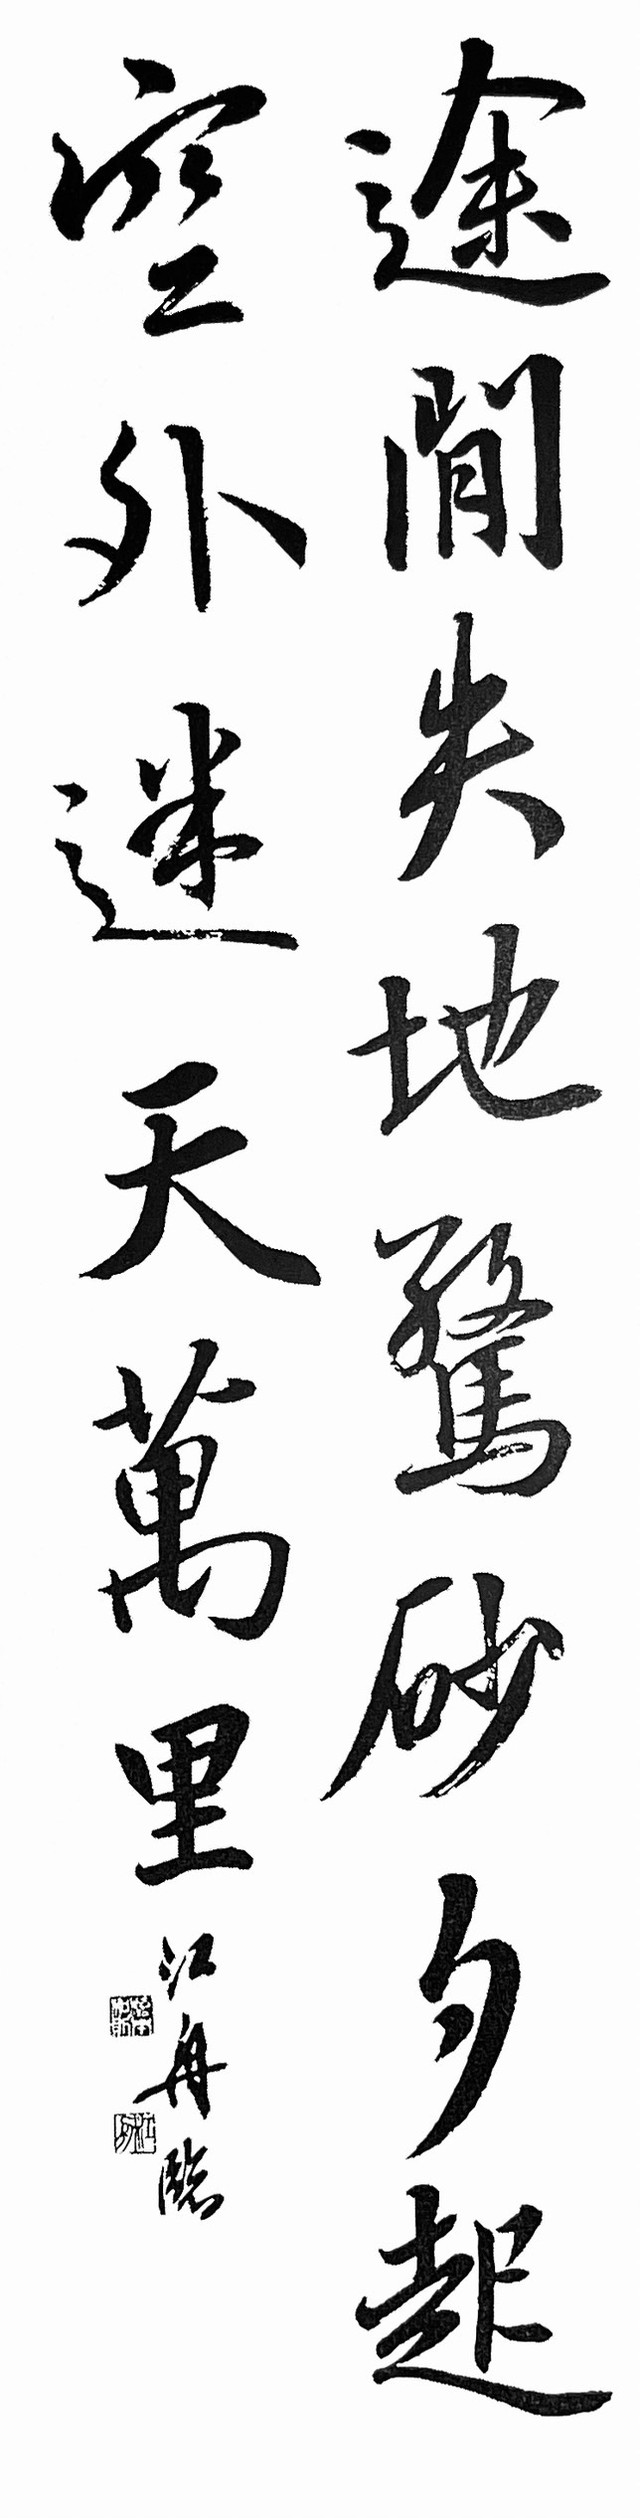 途間失地驚砂夕起
空外迷天萬里
江舟臨